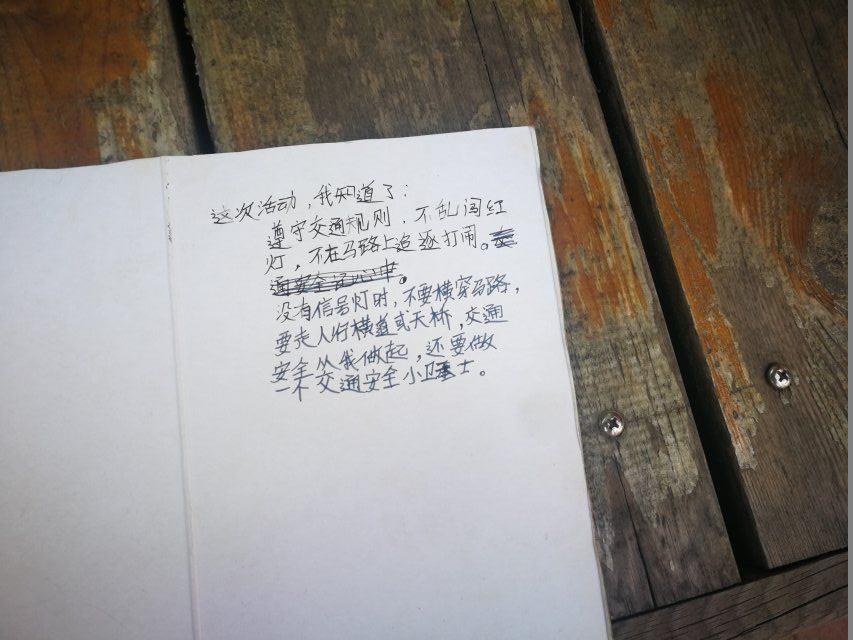 这次活动，我知道了：
遵守交通规则．不乱闯红
灯，不在马路上追逐打闹。
没有信号灯时，不要横穿马路，
要走人行横道或天桥，交通
安全从我做起，还要做
一个交通安全小卫士。